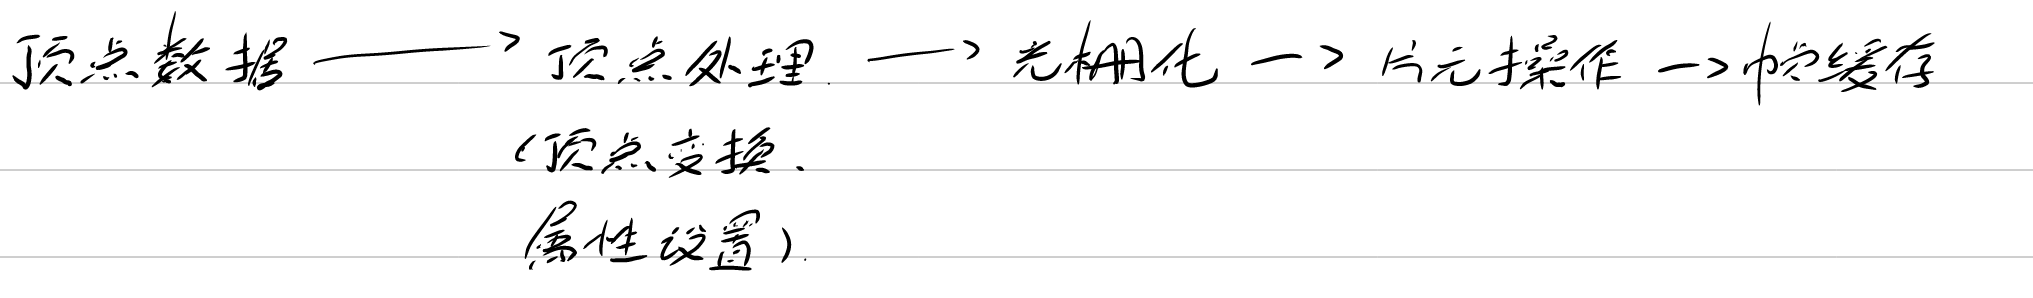 顶点数据 → 顶点处理 → 光栅化 → 片元操作 → 帧缓存
(顶点变换、
属性设置)